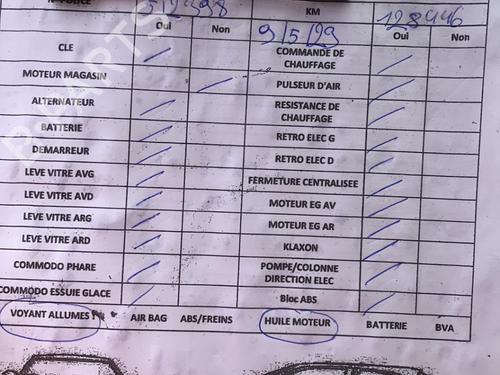 KM 128446
Oui Non 9/5/29 Oui Non
CLE COMMANDE DE CHAUFFAGE
MOTEUR MAGASIN PULSEUR D'AIR
ALTERNATEUR RESISTANCE DE CHAUFFAGE
BATTERIE RETRO ELEC G
DEMARREUR RETRO ELEC D
LEVE VITRE AVG FERMETURE CENTRALISEE
LEVE VITRE AVD MOTEUR EG AV
LEVE VITRE ARG MOTEUR EG AR
LEVE VITRE ARD KLAXON
COMMODO PHARE POMPE/COLONNE DIRECTION ELEC
COMMODO ESSUIE GLACE Bloc ABS
VOYANT ALLUMES AIR BAG ABS/FREINS HUILE MOTEUR BATTERIE BVA